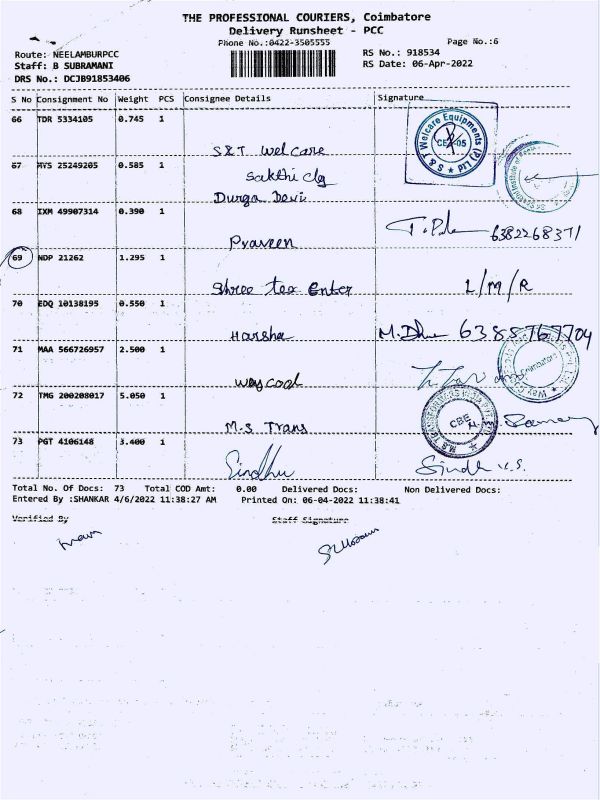 THE PROFESSIONAL COURIERS, Coimbatore
Delivery Runsheet - PCC
Phone No.:0422-3505555
Page No.:6
Route: NEELAMBURPCC
RS No.: 918534
Staff: B SUBRAMANI
RS Date: 06-Apr-2022
DRS No.: DCJB91853406
S No Consignment No Weight PCS Consignee Details Signature
66 TDR 5334105 0.745 1
S&T Welcare
Welcare Equipments (P) Ltd
67 MYS 25249205 0.585 1
Sakthi clg
Durga Devi
68 IXM 49907314 0.390 1
Praveen
6382268371
69 NDP 21262 1.295 1
Shree tex Enter
L/M/R
70 EDQ 10138195 0.550 1
Harsha
6385767704
71 MAA 566726957 2.500 1
Waycool
Coimbatore
72 TMG 200208017 5.050 1
M.S Trans
CBE
73 PGT 4106148 3.400 1
Sindhu
Sindhu V.S.
Total No. Of Docs: 73 Total COD Amt: 0.00 Delivered Docs: Non Delivered Docs:
Entered By :SHANKAR 4/6/2022 11:38:27 AM Printed On: 06-04-2022 11:38:41
Verified By Staff Signature